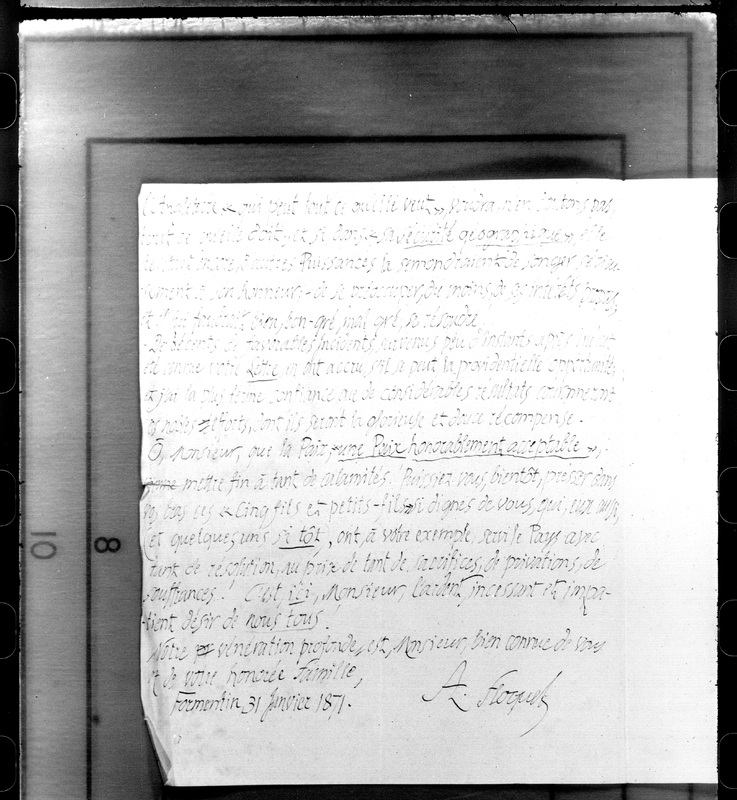 qui peut tout ce qu'elle veut », voudra, n'en doutons pas,
tout ce qu'elle doit, et si dans « sa sécurité géographique », elle
d'autres Puissances la
à son honneur, - de se préoccuper, du moins, de ses intérêts propres,
et il lui faudra bien, bon-gré, mal gré, se résoudre.
De récents et favorables incidents, survenus peu d'instants après
votre Lettre en ont accru, s'il se peut la providentielle opportunité,
et j'ai la plus ferme confiance que de considérables résultats couronneront
vos nobles efforts, dont ils seront la glorieuse et douce récompense.
Ô, Monsieur, que la Paix, « une Paix honorablement acceptable »,
mettre fin à tant de calamités! Puissiez vous, bientôt, presser dans
vos bras ces « Cinq fils et petits-fils » si dignes de vous, qui, eux aussi,
(et quelques uns si tôt), ont, à votre exemple, servi le Pays avec
tant de résolution, au prix de tant de sacrifices, de privations, de
souffrances! C'est ici, Monsieur, l'ardent, incessant et impa-
tient désir de nous tous!
Notre vénération profonde, est, Monsieur, bien connue de vous
et de votre honorée Famille,
Formentin, 31 Janvier 1871.
A. Floquet
10
8